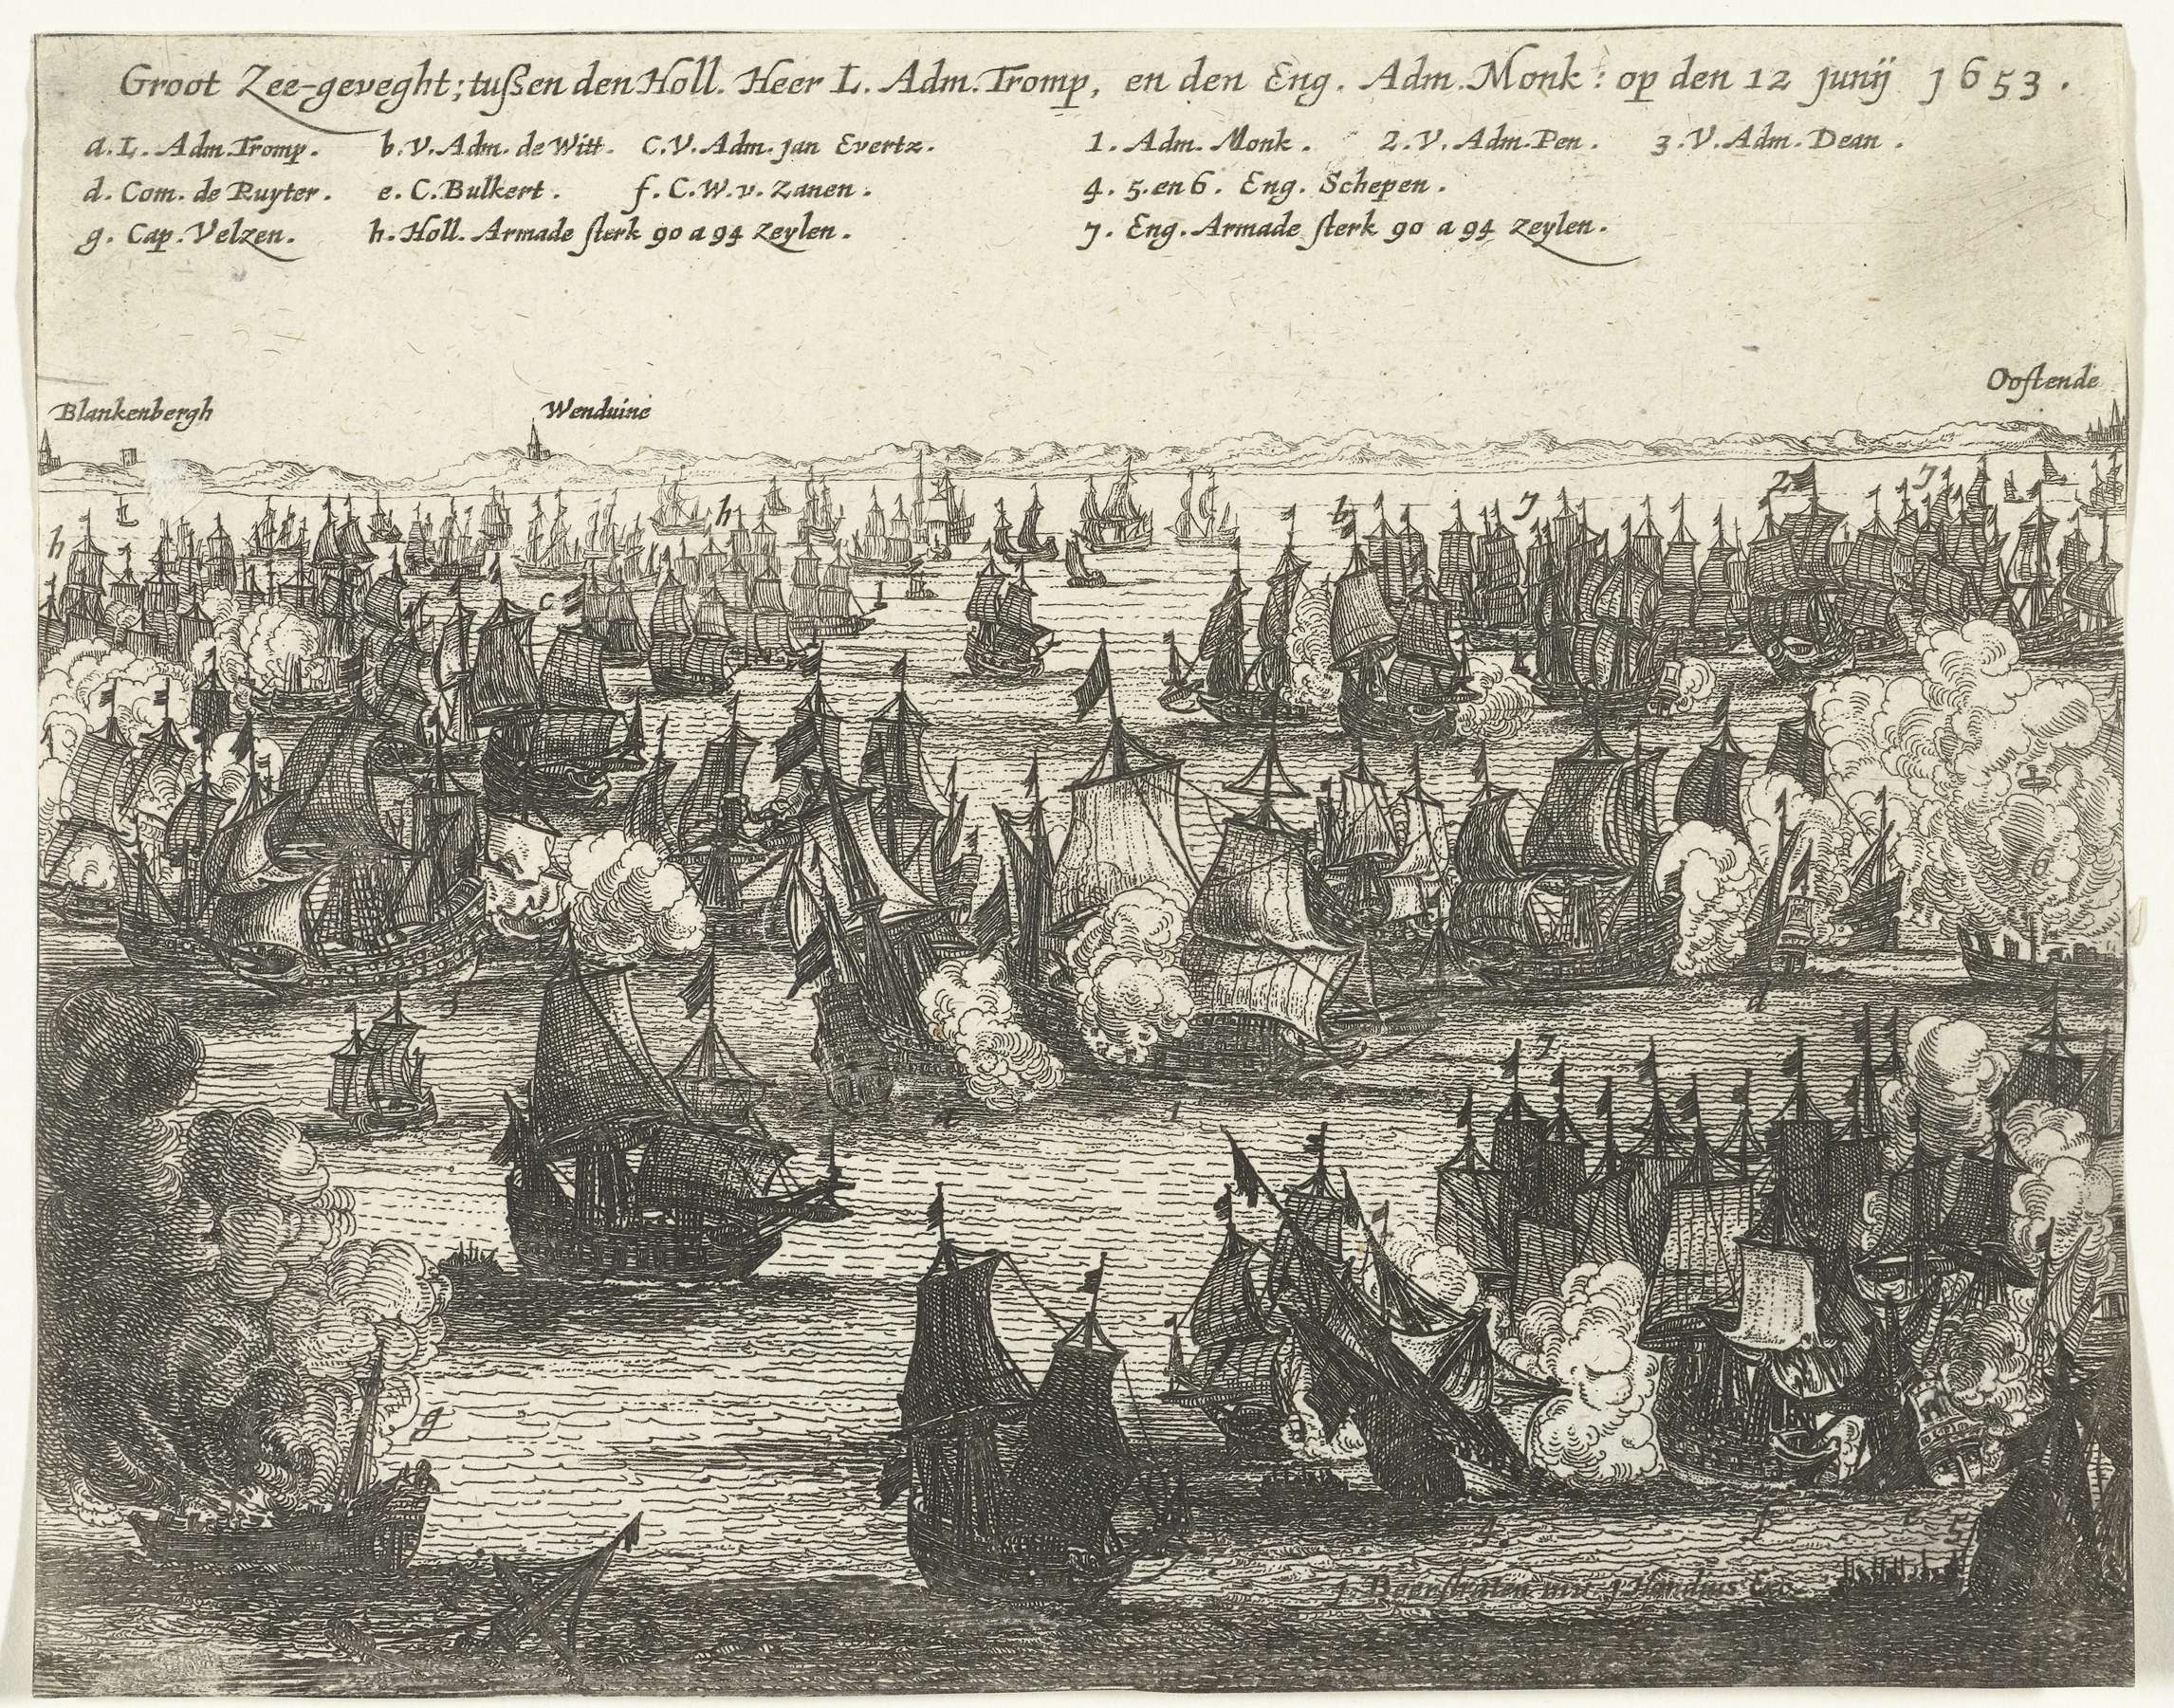 Groot Zee-geveght; tußen den Holl. Heer L. Adm. Tromp, en den Eng. Adm. Monk: op den 12 junij 1653.
a. L. Adm. Tromp. b. V. Adm. de Witt. C. V. Adm. jan Evertz. 1. Adm. Monk. 2. V. Adm. Pen. 3. V. Adm. Dean.
d. Com. de Ruyter. e. C. Bulkert. f. C. W. v. Zanen. 4. 5. en 6. Eng. Schepen.
g. Cap. Velzen. h. Holl. Armade sterk 90 a 94 Zeylen. 7. Eng. Armade sterk 90 a 94 Zeylen.
Oostende
Blankenbergh Wenduine
2 7
h h b 7
c
6
7
g
J Beerstraten inv. J Hondius Exc.